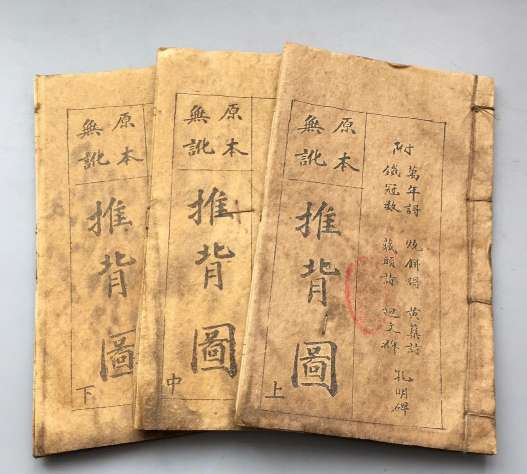 附
萬年
燒餅
黃蘗詩
鐵冠數
藏頭詩
孔明碑
原本
無訛
推背圖
上
原本
無訛
推背圖
中
原本
無訛
推背圖
下